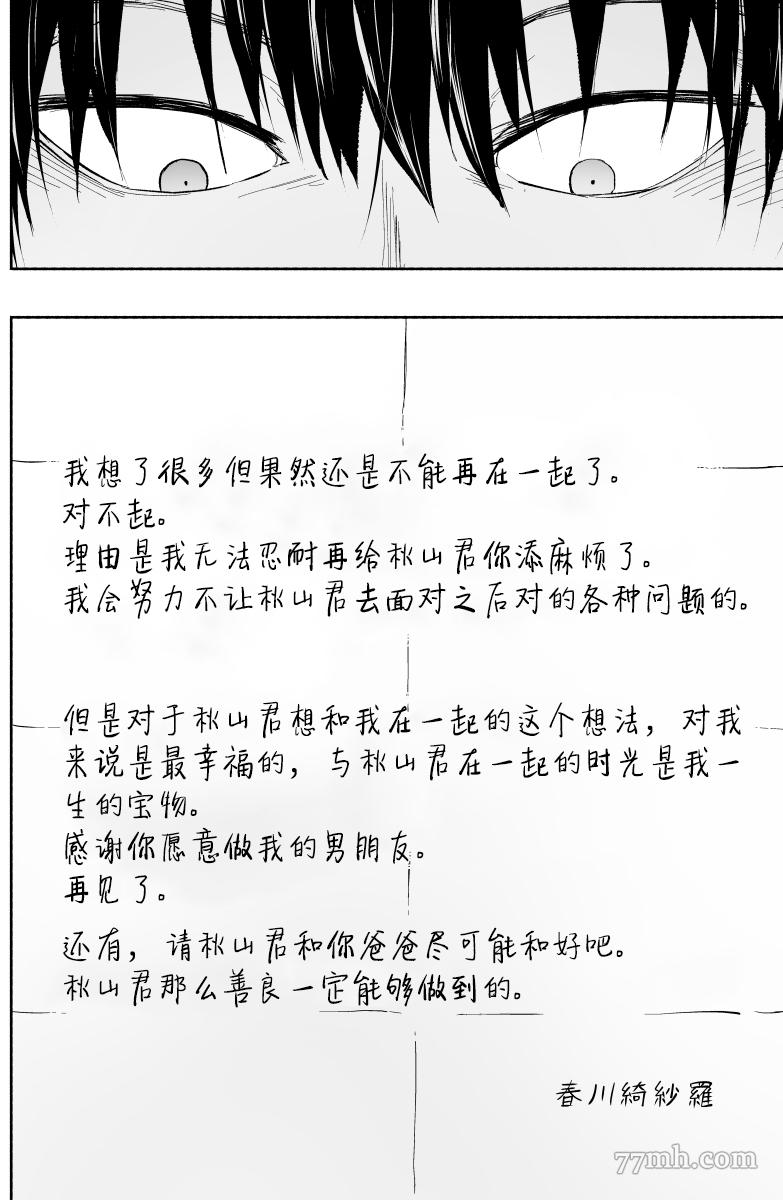 我想了很多但果然还是不能再在一起了。
对不起。
理由是我无法忍耐再给秋山君你添麻烦了。
我会努力不让秋山君去面对之后对的各种问题的。
但是对于秋山君想和我在一起的这个想法，对我
来说是最幸福的，与秋山君在一起的时光是我一
生的宝物。
感谢你愿意做我的男朋友。
再见了。
还有，请秋山君和你爸爸尽可能和好吧。
秋山君那么善良一定能够做到的。
春川綺紗羅
77mh.com